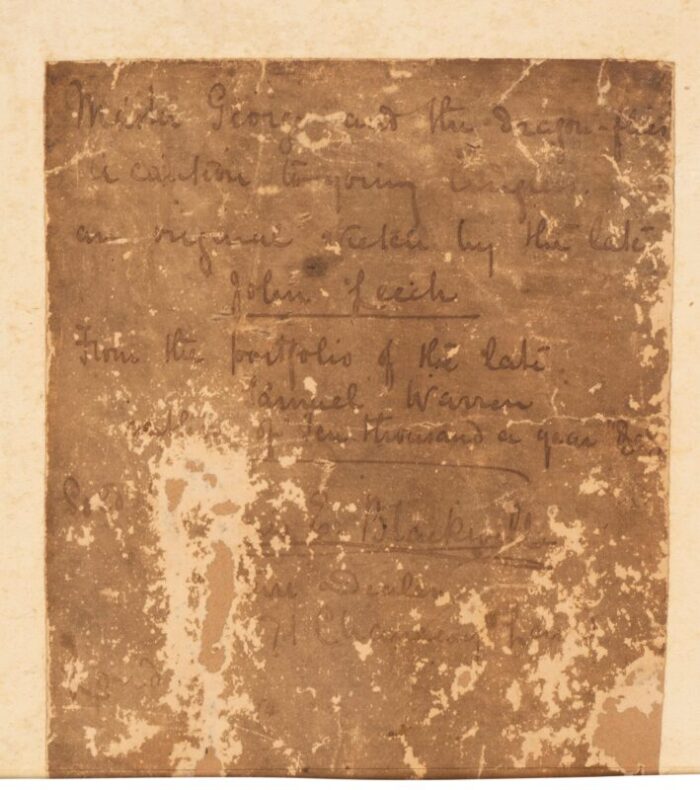 Master George and the dragon-flies
a caution to young anglers.
an original sketch by the late
John Leech
From the portfolio of the late
Samuel Warren
of Ten thousand a year &c
E. Blackwell
Dealer
71 Chancery Lane